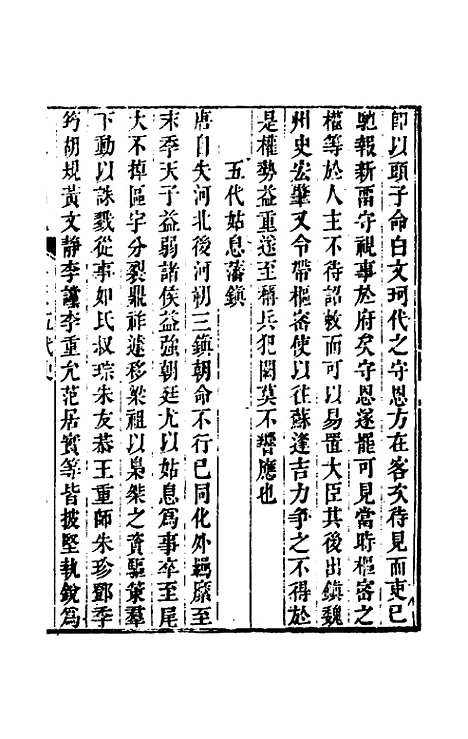 即以頭子命白文珂代之守恩方在客次待見而吏已
馳報新畱守視事於府矣守恩遂罷可見當時樞密之
權等於人主不待詔敕而可以易置大臣其後出鎮魏
州史宏肇又令帶樞密使以往蘇逢吉力爭之不得於
是權勢益重遂至稱兵犯闕莫不響應也
五代姑息藩鎮
唐自失河北後河朔三鎮朝命不行已同化外羈縻至
末季天子益弱諸侯益強朝廷尤以姑息爲事卒至尾
大不掉區宇分裂鼎祚遽移梁祖以梟桀之資驅策羣
下動以誅戮從事如氏叔琮朱友恭王重師朱珍鄧季
筠胡規黃文靖李讜李重允范居實等皆披堅執銳爲
五代史